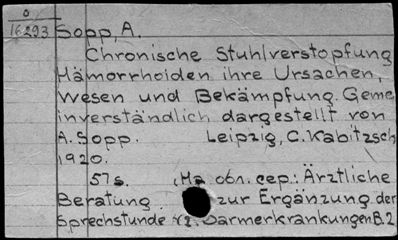 0
16293
Sopp, A.
Chronische Stuhlverstopfung
Hämorrhoiden ihre Ursachen,
Wesen und Bekämpfung. Geme
inverständlich dargestellt von
A. Sopp. Leipzig, C. Kabitzsch
1920.
57 s. (На обл. сер.: Ärztliche
Beratung zur Ergänzung der
Sprechstunde Darmerkrankungen B. 2